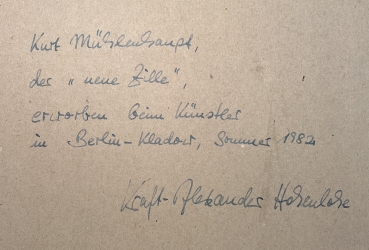 Kurt Mühlenhaupt,
der „neue Zille",
erworben beim Künstler
in Berlin-Kladow, Sommer 1982
Kraft-Alexander Hohenlohe